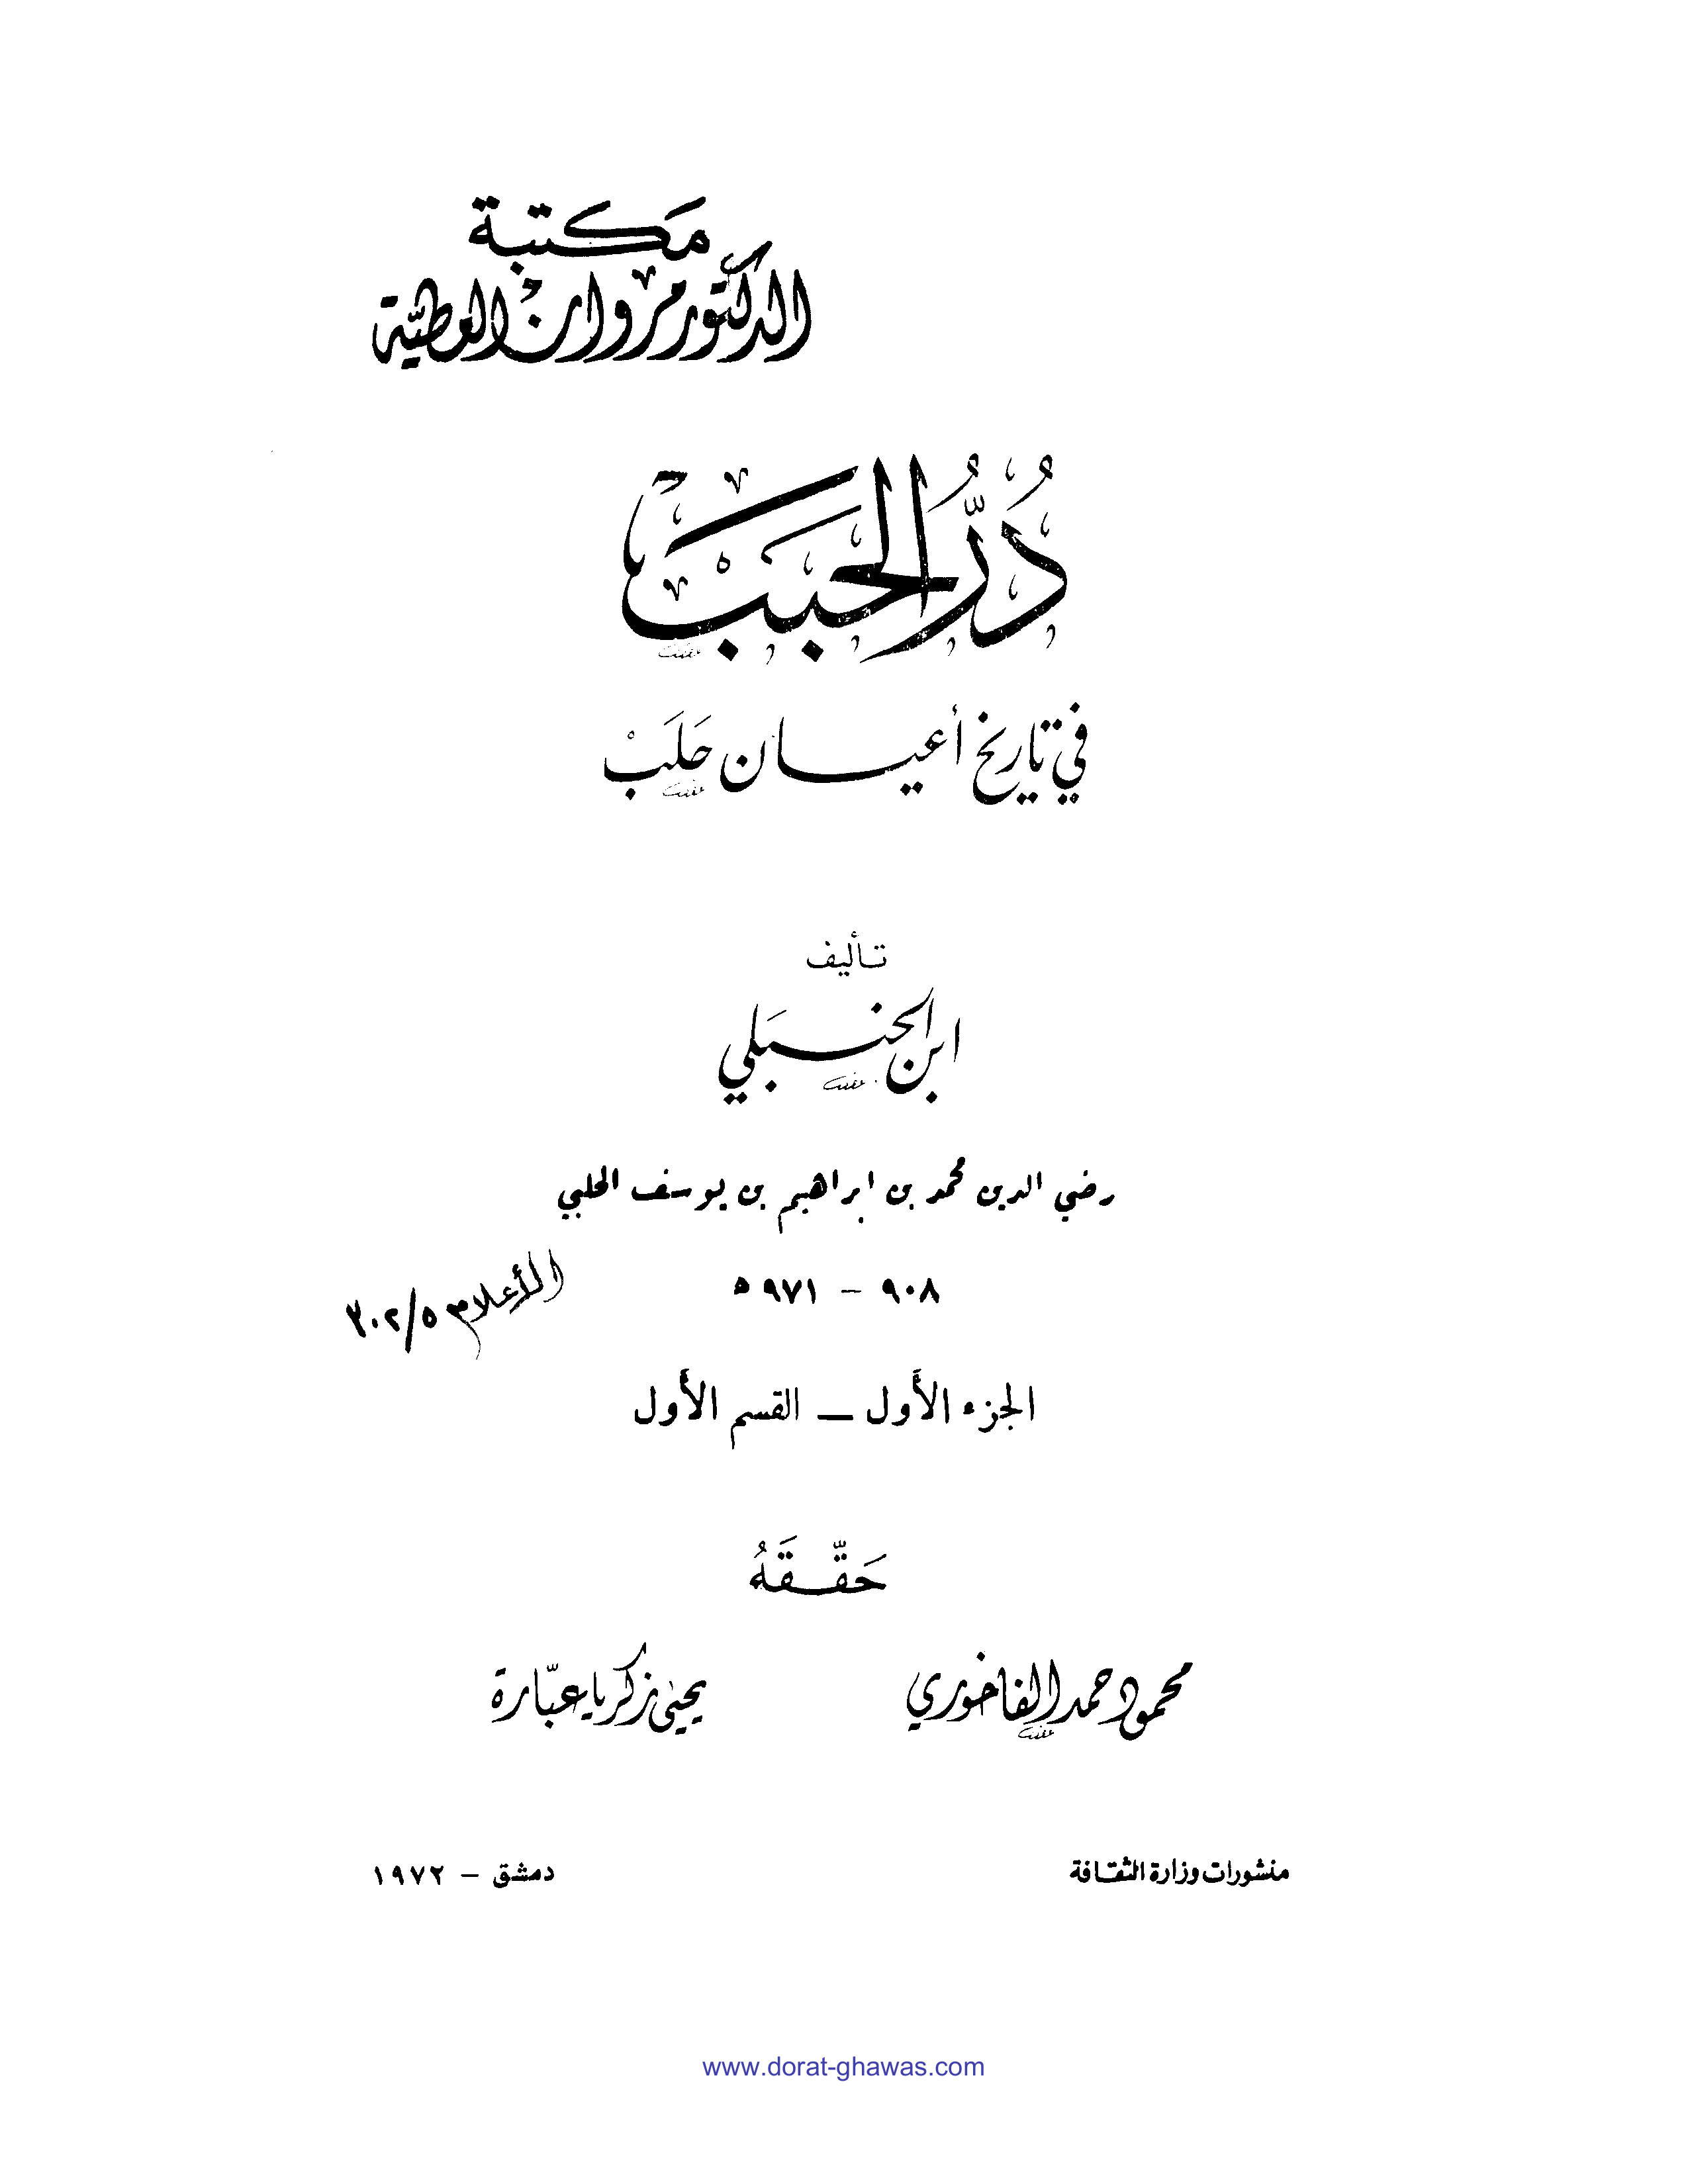 مَكتبة
الدكتور مروان العطيّة
دُرُّ الحَبَبْ
في تاريخ أعيان حَلَبْ
تأليف
ابن الحنبَلي
رضي الدين محمد بن ابراهيم بن يوسف الحلبي
٩٠٨ – ٩٧١ ه
الأعلام ٣٠٢/٥
الجزء الأول – القسم الأول
حَقَّقَهُ
محمود حمد الفاخوري يحيى زكريا عبّارة
منشورات وزارة الثقافة دمشق – ١٩٧٢
www.dorat-ghawas.com